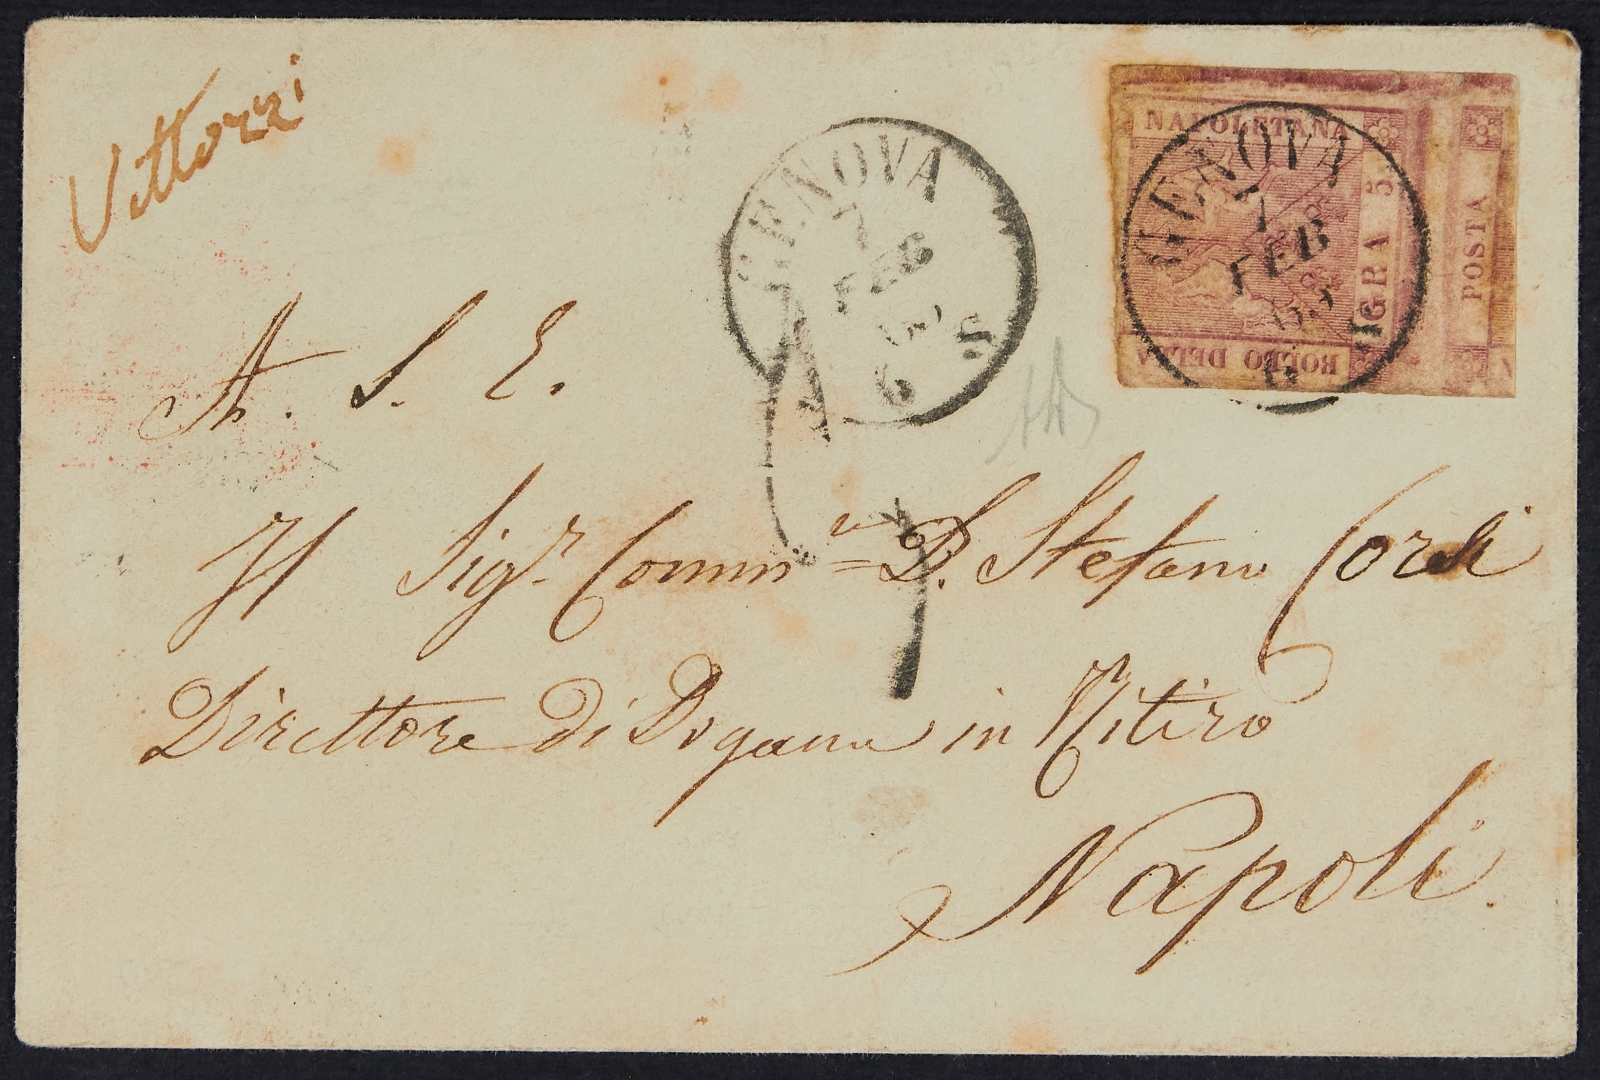 Vittozzi
NAPOLETANA
GRA 5
BOLLO DELLA
POSTA
GENOVA
7
FEB
63
GENOVA
7
FEB
63
6 S
A. S. E.
Il Sig.r Comm.re D. Stefano Corsi
Direttore di Dogana in Ritiro
Napoli.